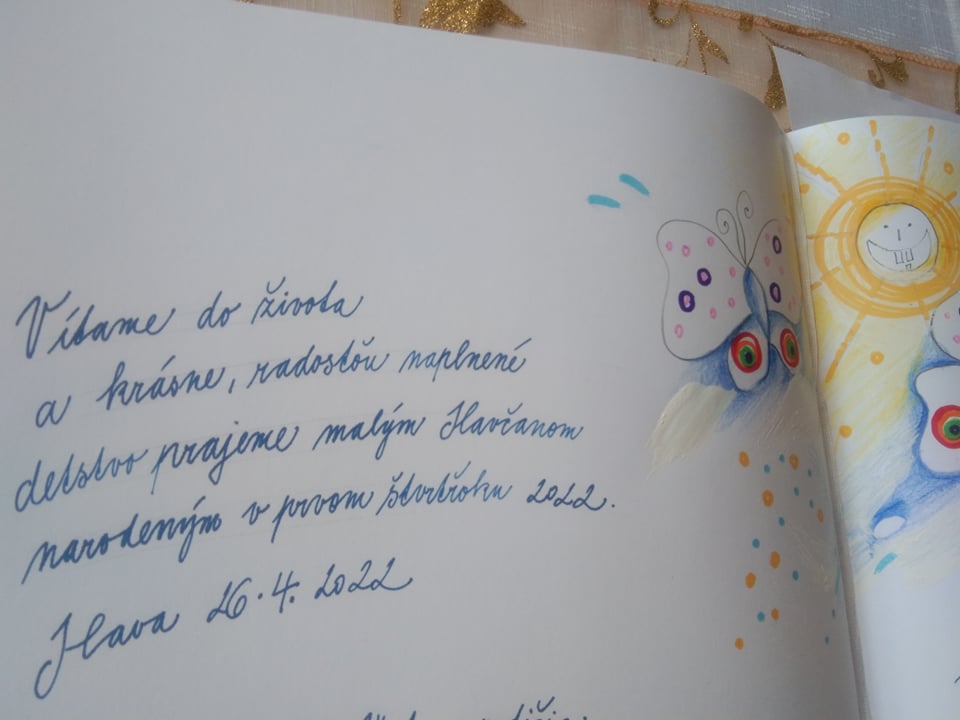 Vítame do života
a krásne, radosťou naplnené
detstvo prajeme malým Ilavčanom
narodeným v prvom štvrťroku 2022.
Ilava 26.4.2022